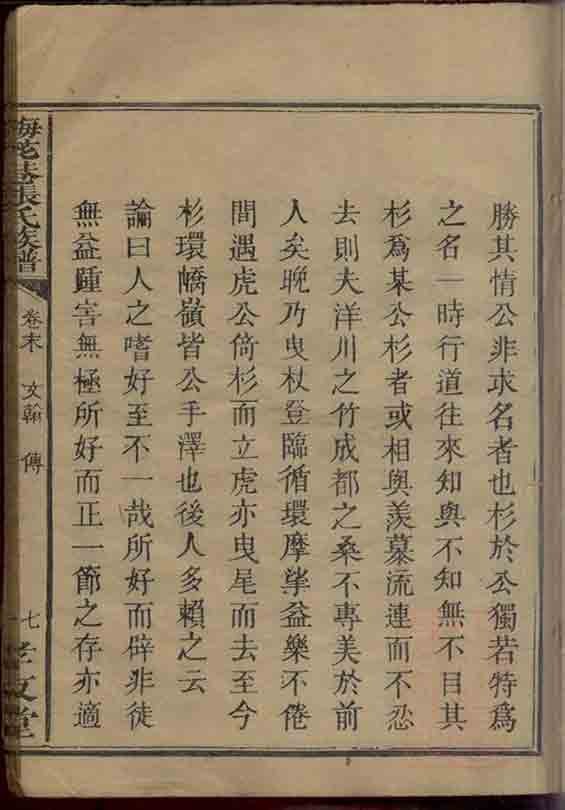 勝其情公非求名者也杉於公獨若特爲
之名一時行道往來知與不知無不目其
杉爲某公杉者或相與羨慕流連而不忍
去則夫洋川之竹成都之桑不專美於前
人矣晚乃曳杖登臨循環摩挲益樂不倦
間遇虎公倚杉而立虎亦曳尾而去至今
杉環嶠嶺皆公手澤也後人多賴之云
論曰人之嗜好至不一哉所好而辟非徒
無益踵害無極所好而正一節之存亦適
張氏族譜
卷末 文翰 傳
七
孝友堂